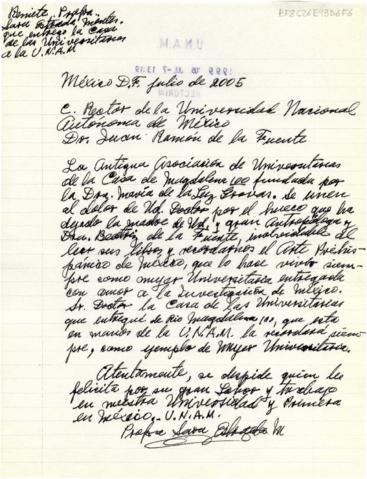 Remite, Profra.
Sara Estrada Montes.
que entregó la Casa
de las Universitarias
a la U.N.A.M
EF8C26E93D6F6
U N A M
México D.F. Julio de 2005
C. Rector de la Universidad Nacional
Autónoma de México
Dr. Juan Ramón de la Fuente
La Antigua Asociación de Universitarias
de la Casa de Magdalena 100 fundada por
la Dra. María de la Luz Grovas. se unen
al dolor de Ud. Doctor por el hueco que ha
dejado la madre de Ud. y gran
Dra. Beatriz de la Fuente, inolvidable al
leer sus libros y recordarnos el Arte Prehis-
pánico de México, que lo hace vivir siem-
pre como mujer Universitaria entregada
con amor a la investigación de México.
Sr. Doctor la Casa de las Universitarias
que entregué de Río Magdalena 100, que está
en manos de la U.N.A.M. la recordará siem-
pre, como ejemplo de Mujer Universitaria.
Atentamente, se despide quien le
felicita por su gran Labor y trabajo
en nuestra Universidad y Primera
en México, U.N.A.M.
Profra Sara M